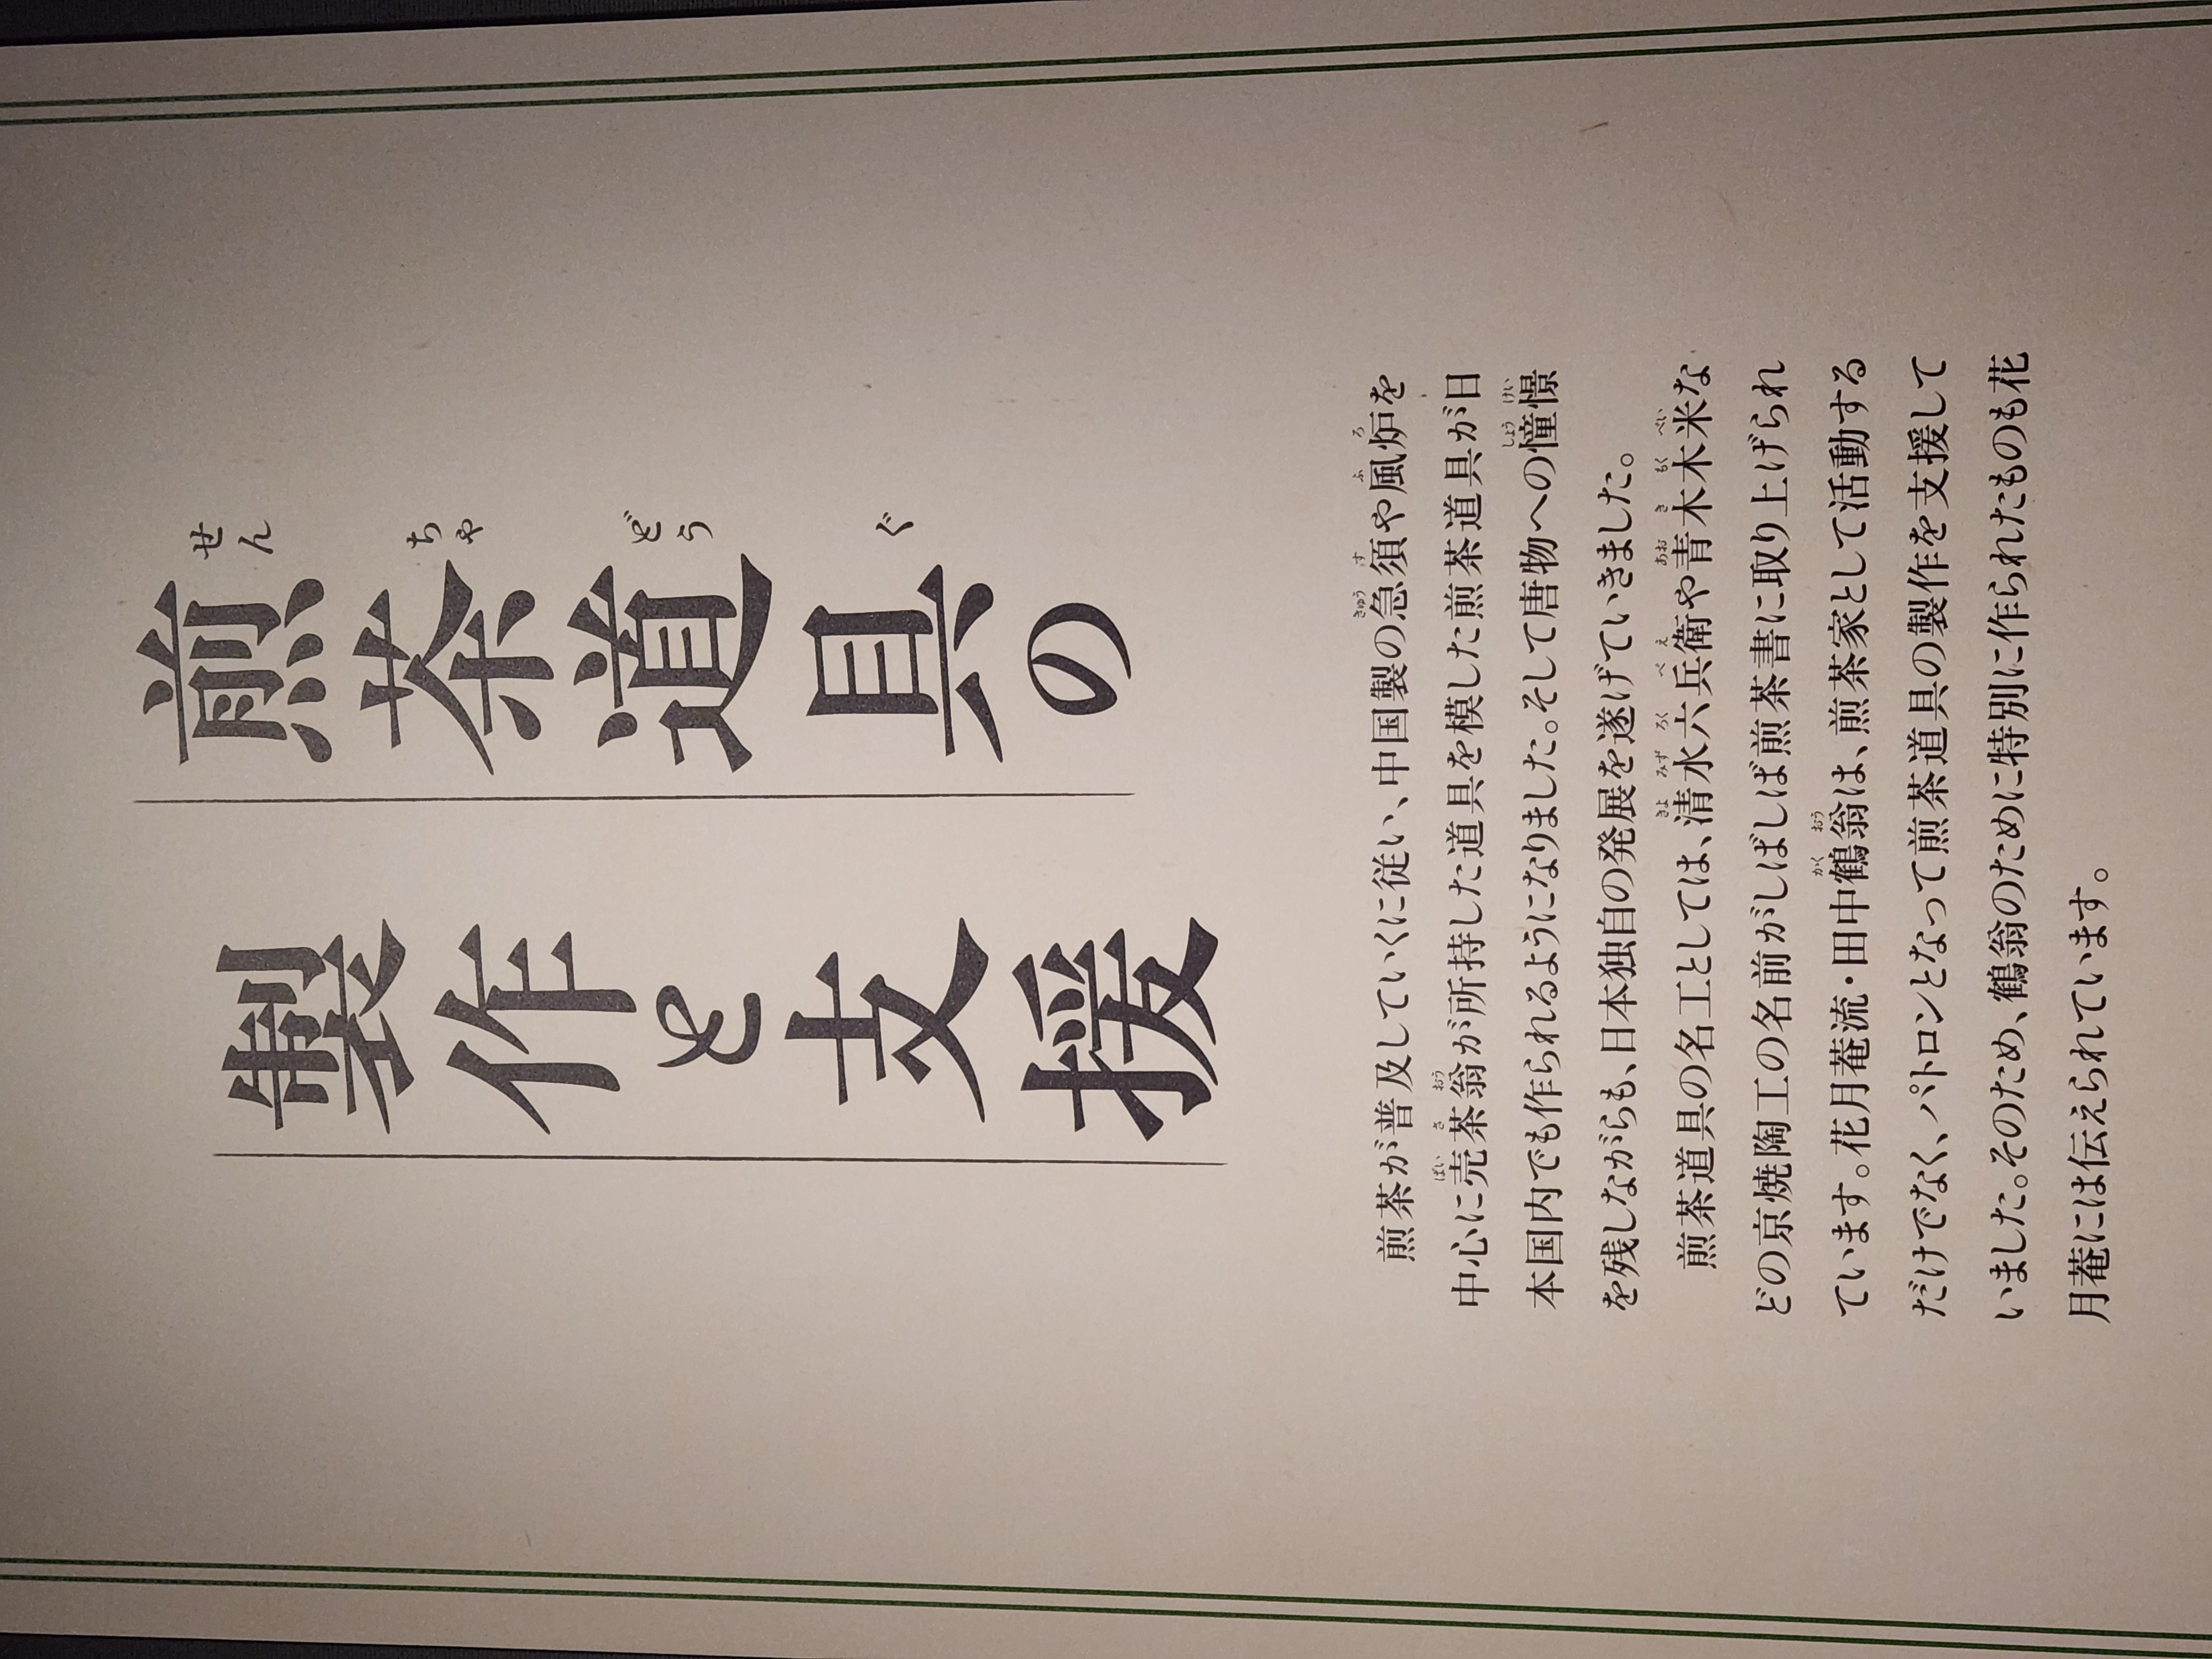 煎茶道具の
製作と支援
煎茶が普及していくに従い、中国製の急須や風炉を
中心に売茶翁が所持した道具を模した煎茶道具が日
本国内でも作られるようになりました。そして唐物への憧憬
を残しながらも、日本独自の発展を遂げていきました。
煎茶道具の名工としては、清水六兵衛や青木木米な
どの京焼陶工の名前がしばしば煎茶書に取り上げられ
ています。花月菴流・田中鶴翁は、煎茶家として活動する
だけでなく、パトロンとなって煎茶道具の製作を支援して
いました。そのため、鶴翁のために特別に作られたものも花
月菴には伝えられています。